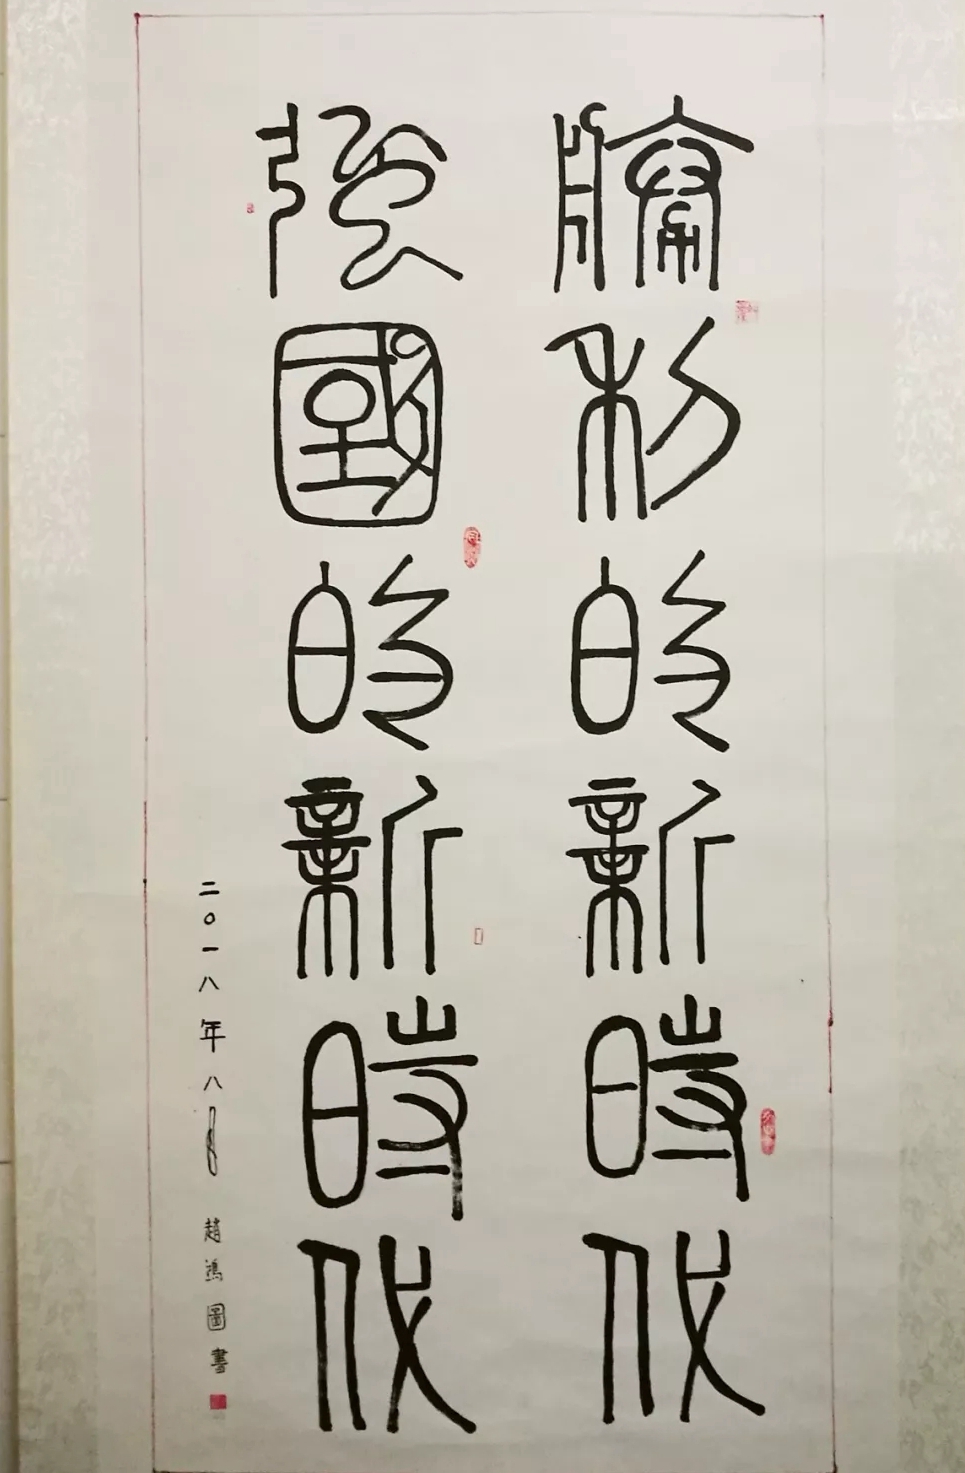 勝利的新時代
強國的新時代
二〇一八年八月 趙鴻圖書